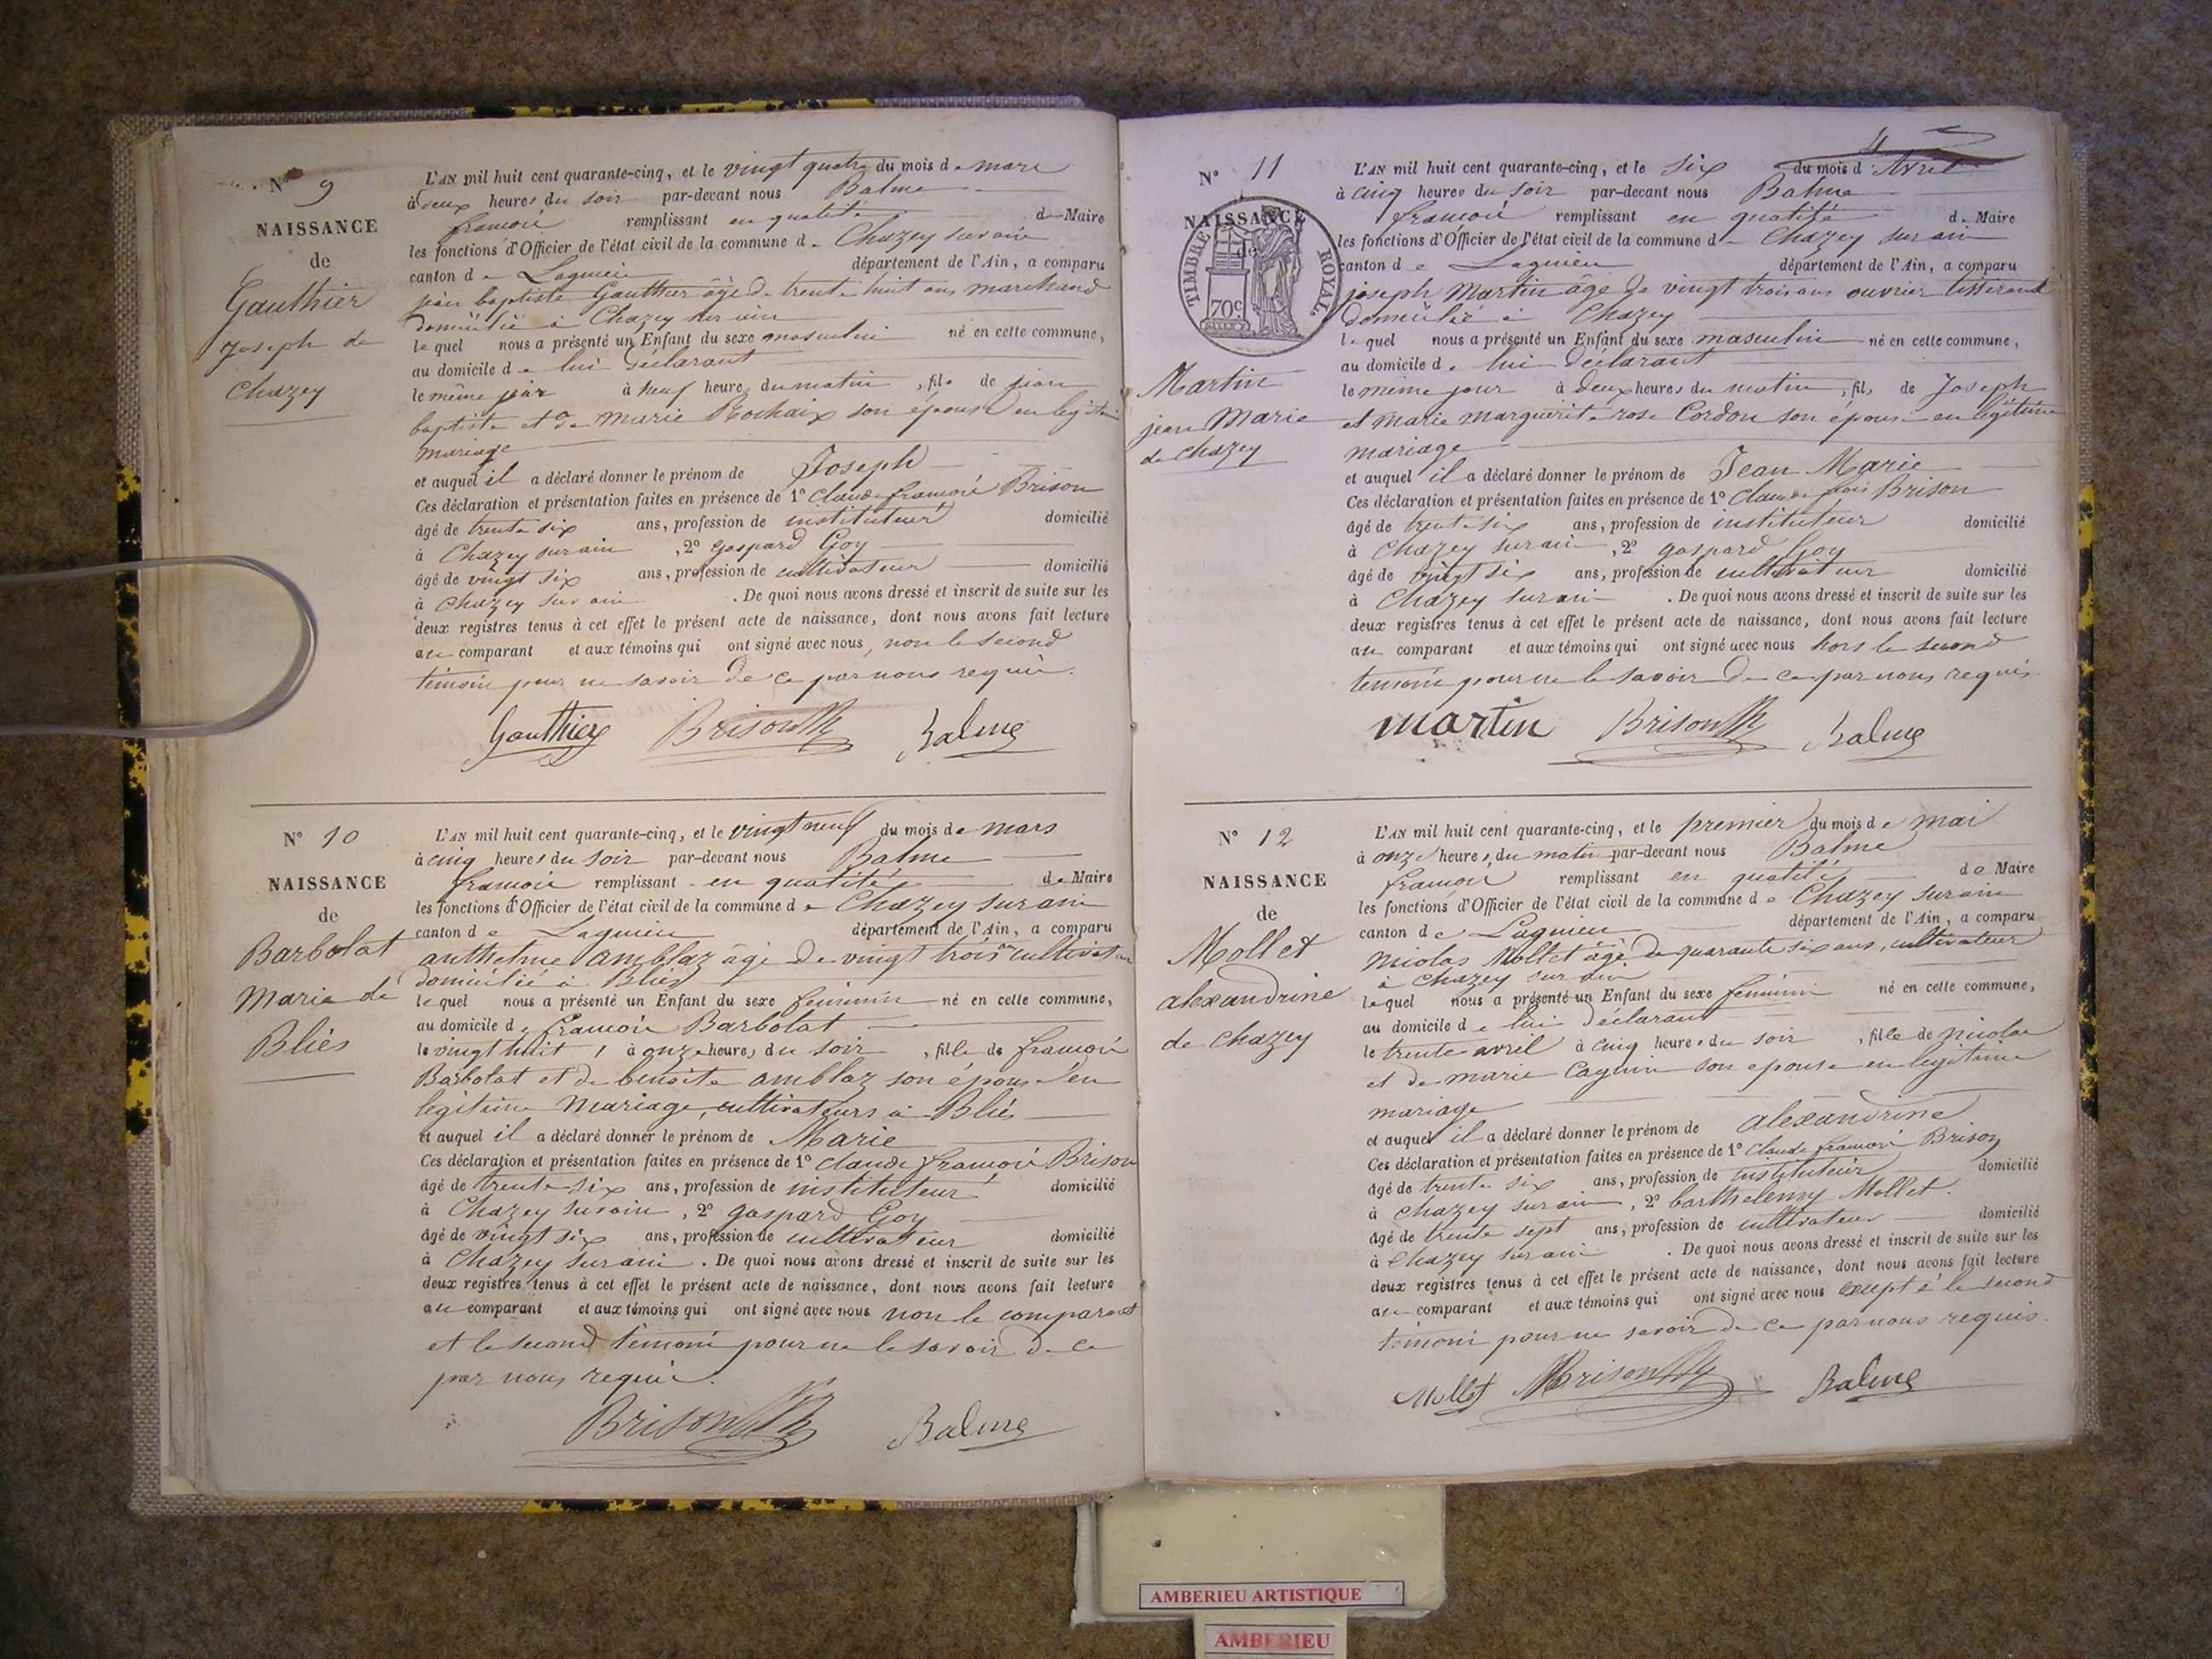 N° 9
NAISSANCE
de
Gauthier
Joseph de
Chazey
L'AN mil huit cent quarante-cinq, et le vingt quatre du mois de mars
à deux heures du soir par-devant nous Balme
françois remplissant en qualité de Maire
les fonctions d'Officier de l'état civil de la commune de Chazey sur ain
canton de Lagnieu département de l'Ain, a comparu
jean baptiste Gauthier âgé de trente huit ans marchand
domicilié à Chazey sur ain
lequel nous a présenté un Enfant du sexe masculin né en cette commune,
au domicile de lui déclarant
le même jour à neuf heures du matin, fils de jean
baptiste et de marie Rochaix son épouse en légitime
mariage
et auquel il a déclaré donner le prénom de Joseph
Ces déclaration et présentation faites en présence de 1° Claude françois Brison
âgé de trente six ans, profession de instituteur domicilié
à Chazey sur ain, 2° gaspard Goy
âgé de vingt six ans, profession de cultivateur domicilié
à Chazey sur ain. De quoi nous avons dressé et inscrit de suite sur les
deux registres tenus à cet effet le présent acte de naissance, dont nous avons fait lecture
au comparant et aux témoins qui ont signé avec nous, non le second
témoin pour ne savoir de ce par nous requis.
Gauthier Brison Balme
N° 10
NAISSANCE
de
Barbolat
Marie de
Bliés
L'AN mil huit cent quarante-cinq, et le vingt neuf du mois de mars
à cinq heures du soir par-devant nous Balme
françois remplissant en qualité de Maire
les fonctions d'Officier de l'état civil de la commune de Chazey sur ain
canton de Lagnieu département de l'Ain, a comparu
anthelme amblaz âgé de vingt trois ans cultivateur
domicilié à Bliés
lequel nous a présenté un Enfant du sexe féminin né en cette commune,
au domicile de françois Barbolat
le vingt huit, à onze heures du soir, fille de françois
Barbolat et de benoite amblaz son épouse en
légitime mariage, cultivateurs à Bliés
et auquel il a déclaré donner le prénom de Marie
Ces déclaration et présentation faites en présence de 1° claude françois Brison
âgé de trente six ans, profession de instituteur domicilié
à Chazey sur ain, 2° gaspard Goy
âgé de vingt six ans, profession de cultivateur domicilié
à Chazey sur ain. De quoi nous avons dressé et inscrit de suite sur les
deux registres tenus à cet effet le présent acte de naissance, dont nous avons fait lecture
au comparant et aux témoins qui ont signé avec nous non le comparant
et le second témoin pour ne le savoir de ce
par nous requis.
Brison Balme
4
N° 11
NAISSANCE
de
TIMBRE ROYAL
70c
Martin
jean Marie
de chazey
L'AN mil huit cent quarante-cinq, et le six du mois d'Avril
à cinq heures du soir par-devant nous Balme
françois remplissant en qualité de Maire
les fonctions d'Officier de l'état civil de la commune de Chazey sur ain
canton de Lagnieu département de l'Ain, a comparu
joseph Martin âgé de vingt trois ans ouvrier tisserand
domicilié à Chazey
lequel nous a présenté un Enfant du sexe masculin né en cette commune,
au domicile de lui déclarant
le même jour à deux heures du matin, fils de Joseph
et marie marguerite rose Cordon son épouse en légitime
mariage
et auquel il a déclaré donner le prénom de Jean Marie
Ces déclaration et présentation faites en présence de 1° Claude fois Brison
âgé de trente six ans, profession de instituteur domicilié
à Chazey sur ain, 2° gaspard Goy
âgé de vingt six ans, profession de cultivateur domicilié
à Chazey sur ain. De quoi nous avons dressé et inscrit de suite sur les
deux registres tenus à cet effet le présent acte de naissance, dont nous avons fait lecture
au comparant et aux témoins qui ont signé avec nous hors le second
temoin pour ne le savoir de ce par nous requis.
martin Brison Balme
N° 12
NAISSANCE
de
Mollet
alexandrine
de chazey
L'AN mil huit cent quarante-cinq, et le premier du mois de mai
à onze heures du matin par-devant nous Balme
françois remplissant en qualité de Maire
les fonctions d'Officier de l'état civil de la commune de Chazey sur ain
canton de Lagnieu département de l'Ain, a comparu
nicolas Mollet âgé de quarante six ans, cultivateur
à chazey sur ain
lequel nous a présenté un Enfant du sexe féminin né en cette commune,
au domicile de lui déclarant
le trente avril à cinq heures du soir, fille de nicolas
et de marie Cagnin son epouse en legitime
mariage
et auquel il a déclaré donner le prénom de alexandrine
Ces déclaration et présentation faites en présence de 1° Claude françois Brison
âgé de trente six ans, profession de instituteur domicilié
à chazey sur ain, 2° barthelemy Mollet.
âgé de trente sept ans, profession de cultivateur domicilié
à chazey sur ain. De quoi nous avons dressé et inscrit de suite sur les
deux registres tenus à cet effet le présent acte de naissance, dont nous avons fait lecture
au comparant et aux témoins qui ont signé avec nous excepté le second
témoin pour ne savoir de ce par nous requis.
Mollet Brison Balme
AMBERIEU ARTISTIQUE
AMBERIEU